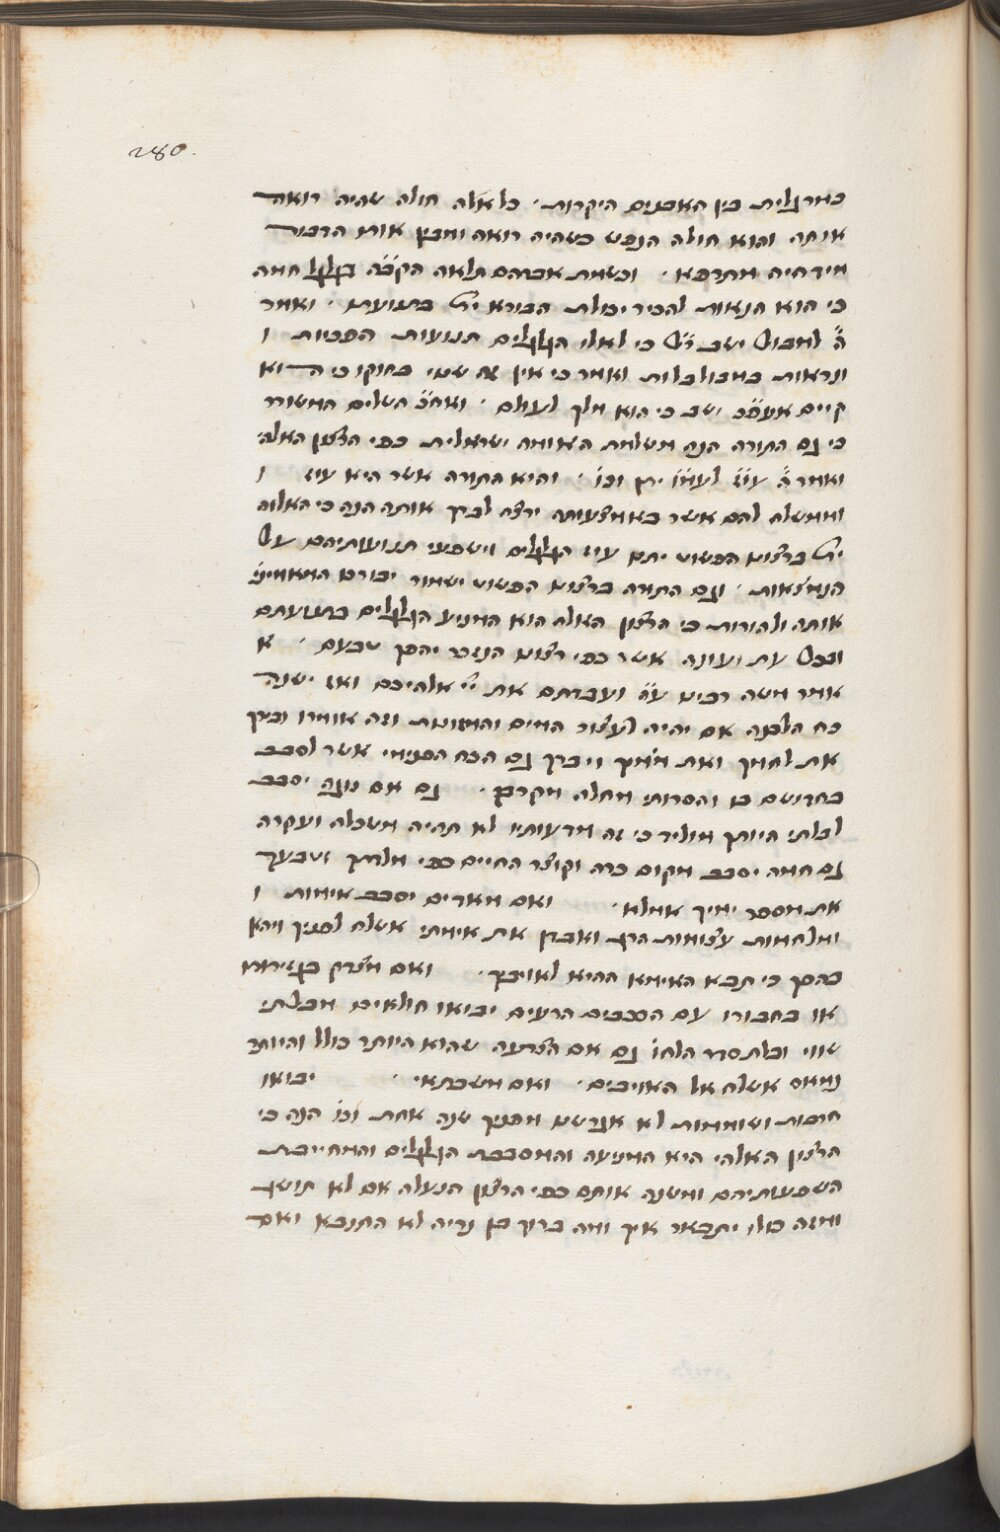 280.
כמרגלית בין האבנים היקרות · כל אלה חולה שהיה רואה
אותה והוא חולה הנפש כשהיה רואה ומבין אותו הדבור
מיד היה מתרפא · וכשמת אברהם תלאה הקב״ה בגלגל חמה
כי הוא הנאות להכיר יכולת הבורא ית׳ בתנועת · ואמר
ה׳ למבול ישב ר״ל כי לאלו הגלגלים תנועות הפכיות ו
ונראות כמבולבלות ואמר כי אין שם שטי בחוקו כי הוא
קיים אעפ״כ ישב כי הוא מלך לעולם · ואח״כ השלים המשורר
כי גם התורה הנה משלמת האומה ישראלית כפי הרצון האלהי
ואמר ה׳ עוז לעמו יתן וכו׳ · והיא התורה אשר היא עוז ו
וממשלה להם אשר באמצעותה ירצה לברך אותה הנה כי האלוה
ית׳ ברצונו הפשוט יתן עוז הגלגלים וישפעו תנועותיהם על
הנמצאות · וגם התורה ברצונו הפשוט ישמור יבורכו המאמינים
אותה ולהורות כי הרצון האלהי הוא המניע הגלגלים בתנועתם
ובכל עת ועונה אשר כפי רצונו הנזכר יהפך טבעם · א
אמר משה רבינו ע״ה ועבדתם את יי׳ אלהיכם ואז ישנה
כח הלבנה אם יהיה לעצור המים והמזונות וזה אומרו וברך
את לחמך ואת מימיך ויברך גם הכח הפנימי אשר לסבב
בחדושם בו והסרותי מחלה מקרבך · גם אם נוגה יסבב
לבלתי היותך מוליד כי זה מדעותיו לא תהיה משכלה ועקרה
גם חמה יסבב מקום כרה וקוצר החיים כפי מלדתך וטבעך
את מספר ימיך אמלא · ואם מאדים יסבב אימות ו
ומלחמות עצומות הרג ואבדן את אימתי אשלח לפניך ויהא
בהפך כי תבא האימא ההיא לאויבך · ואם מצדק בגזירותיו
או בחבורו עם הככבים הרעים יבואו חולאים מבלתי
שווי ובלת סדר הלחו׳ גם אם הצרעה שהוא היותר כולל והיותר
נמאס אשלח אל האויבים · ואם משבתאי · יבואו
חרבות ושוממות לא אגרשנו מפניך שנה אחת וכו׳ הנה כי
הרצון האלהי היא המניעה והמסבבת הגלגלים והמחייבת
השפעותיהם ומשנה אותם כפי הרצון הנעלה אם לא תושך
ומזה כולו יתבאר איך ומה ברוך בן נריה לא התנבא ואם